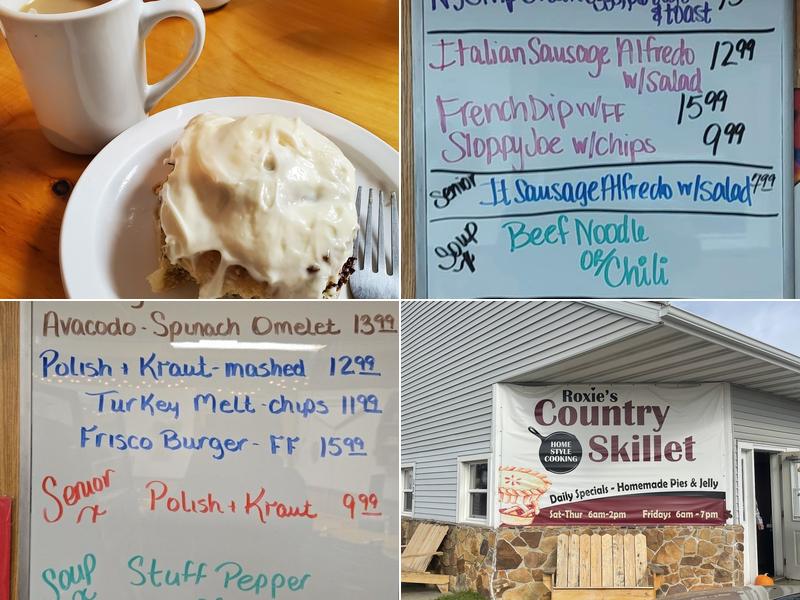 & toast
Italian Sausage Alfredo 12 99
w/salad
French Dip w/FF 15 99
Sloppy Joe w/chips 9 99
Senior It Sausage Alfredo w/salad 7 99
Soup Beef Noodle
or/Chili
Avacodo - Spinach Omelet 13 99
Polish + Kraut - mashed 12 99
Turkey Melt - chips 11 99
Frisco Burger - FF 15 99
Senior Polish + Kraut 9 99
Soup Stuff Pepper
Roxie's
Country
Skillet
HOME
STYLE
COOKING
Daily Specials - Homemade Pies & Jelly
Sat-Thur 6am-2pm Fridays 6am-7pm